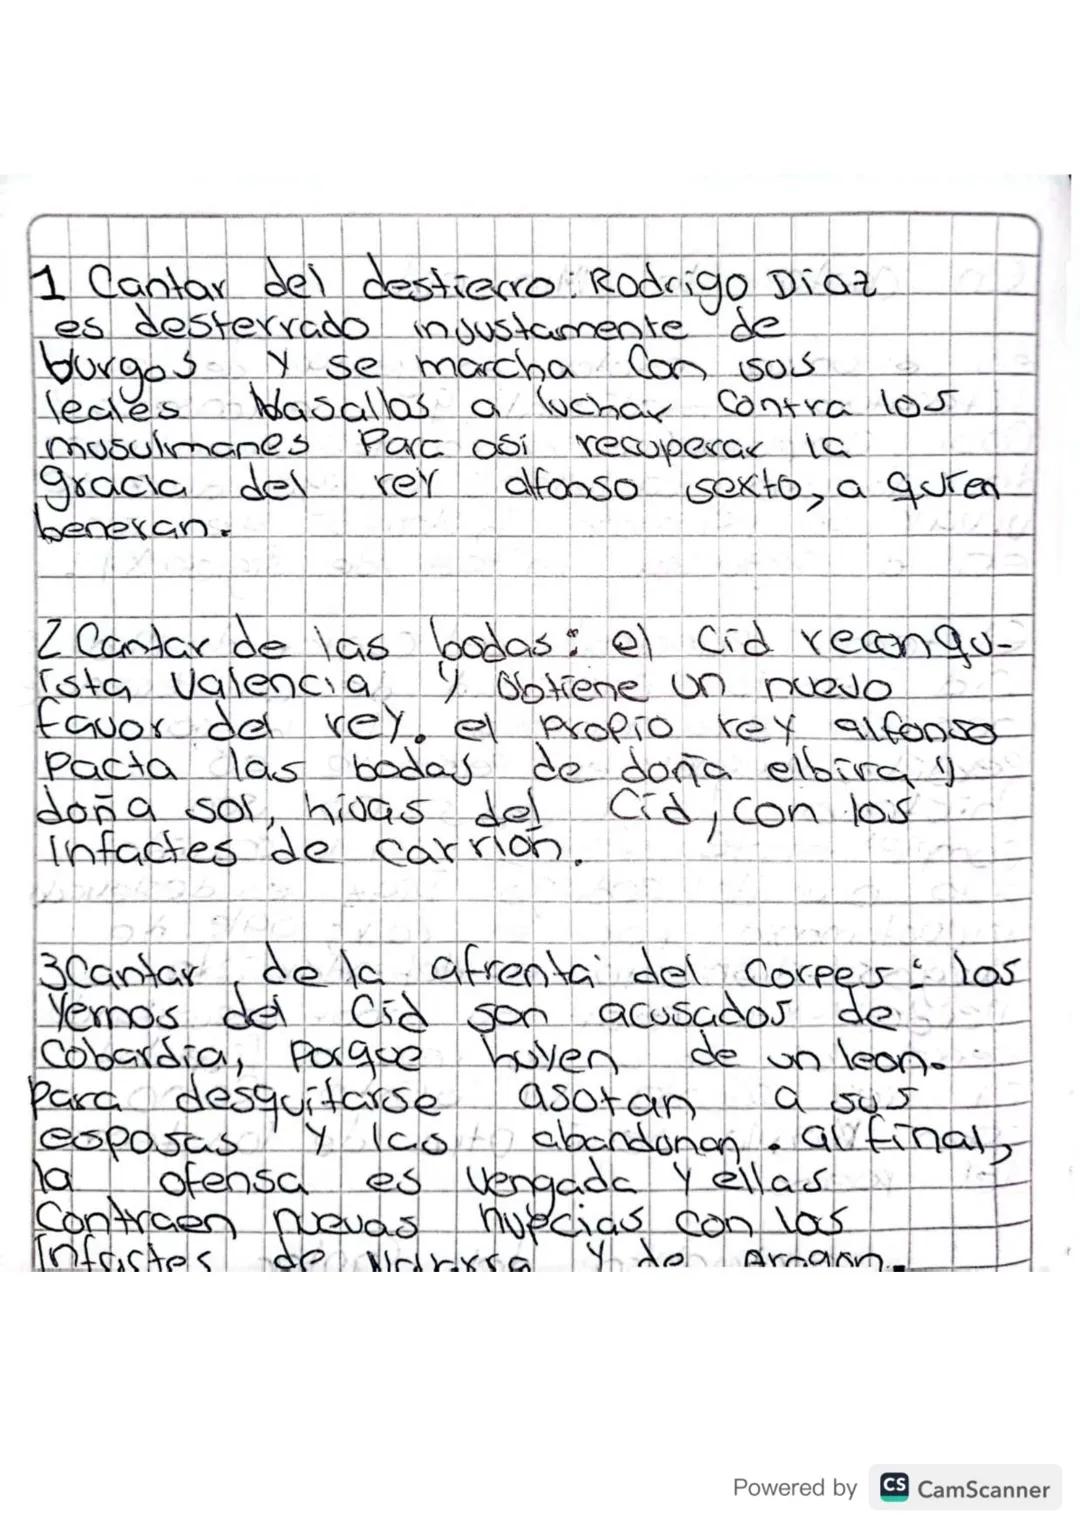 1 Cantar del destierro: Rodrigo Diaz
es desterrado injustamente de
burgos y se marcha Con sus
leales vasallos a luchar contra los
musulmanes Para asi recuperar la
gracia del rey alfonso sexto, a quien
beneran.
2 Cantar de las bodas: el Cid reconqu-
ista Valencia y Obtiene un nuevo
favor del rey. el propio rey alfonso
Pacta las bodas de doña elbira y
doña sol, hijas del Cid, con los
Infactes de carrión.
3 Cantar de la afrenta del Corpes: los
Yernos del Cid son acusados de
Cobardia, porque huyen de un leon.
Para desquitarse asotan a sus
esposas y las abandonan. al final,
la ofensa es vengada y ellas
Contraen nuevas nupcias con los
Infactes de Navarra y de Aragon.
Powered by CS CamScanner